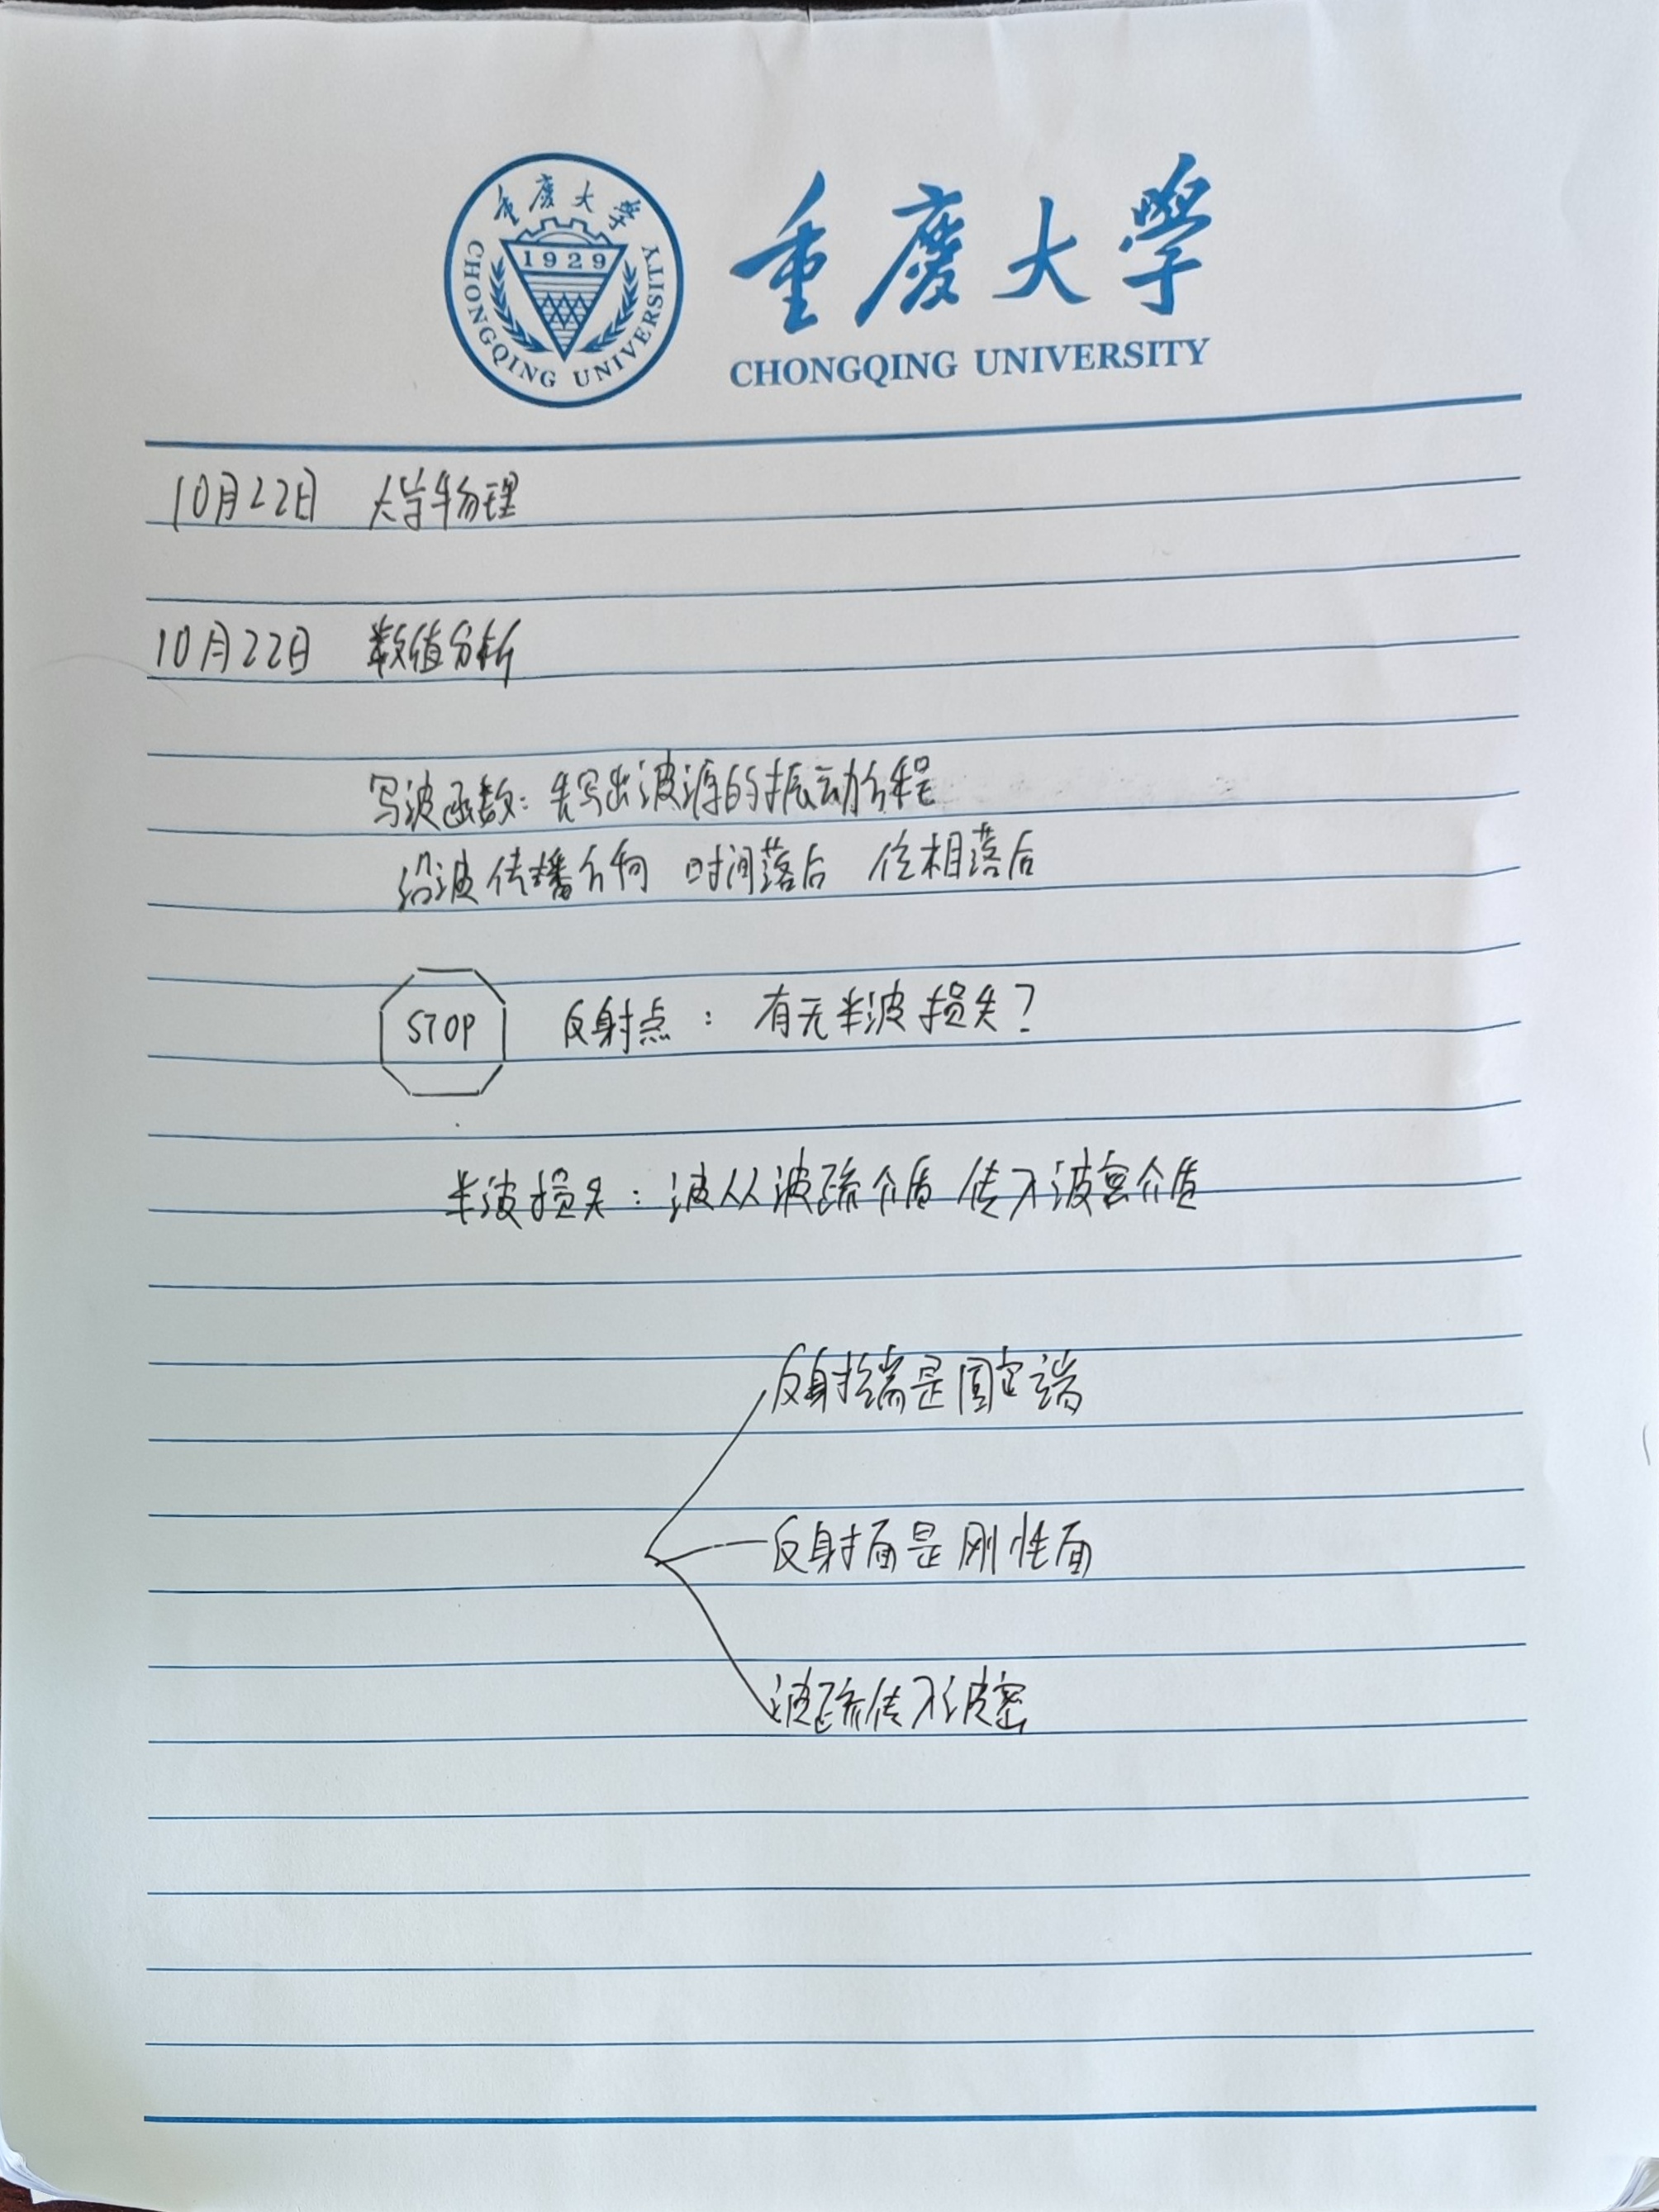 重慶大學
1929
CHONGQING UNIVERSITY
重慶大學
CHONGQING UNIVERSITY
10月22日 大学物理
10月22日 数值分析
写波函数：先写出波源的振动方程
沿波传播方向 时间落后 位相落后
STOP 反射点：有无半波损失？
半波损失：波从波疏介质传入波密介质
反射端是固定端
反射面是刚性面
波疏传入波密